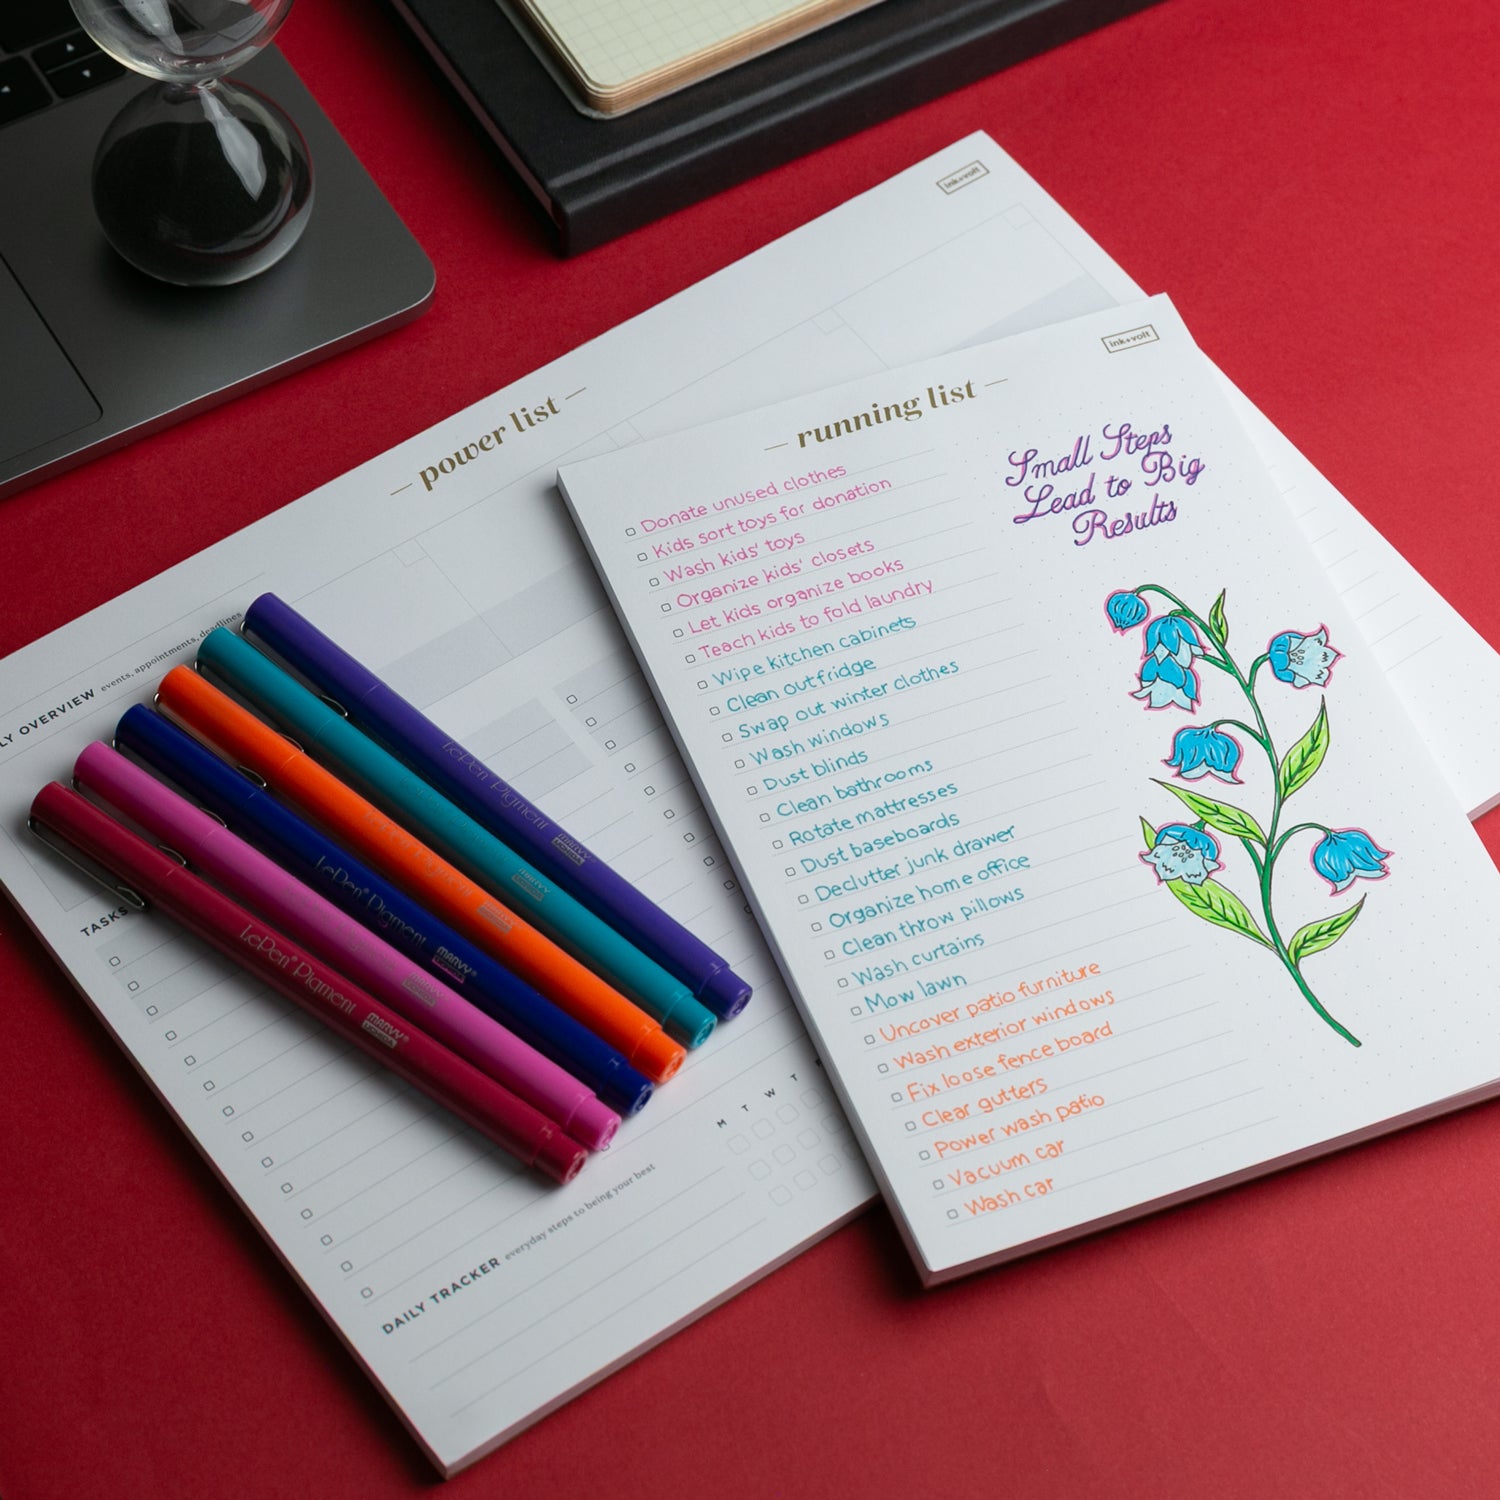 ink+volt
— power list —
LY OVERVIEW events, appointments, deadlines
TASKS
M T W T
DAILY TRACKER everyday steps to being your best
ink+volt
— running list —
Small Steps
Lead to Big
Results
Donate unused clothes
Kids sort toys for donation
Wash kids' toys
Organize kids' closets
Let kids organize books
Teach kids to fold laundry
Wipe kitchen cabinets
Clean out fridge
Swap out winter clothes
Wash windows
Dust blinds
Clean bathrooms
Rotate mattresses
Dust baseboards
Declutter junk drawer
Organize home office
Clean throw pillows
Wash curtains
Mow lawn
Uncover patio furniture
Wash exterior windows
Fix loose fence board
Clear gutters
Power wash patio
Vacuum car
Wash car
LePen Pigment MARVY UCHIDA
LePen Pigment MARVY
LePen® Pigment MARVY® UCHIDA
MARVY
LePen® Pigment MARVY® UCHIDA